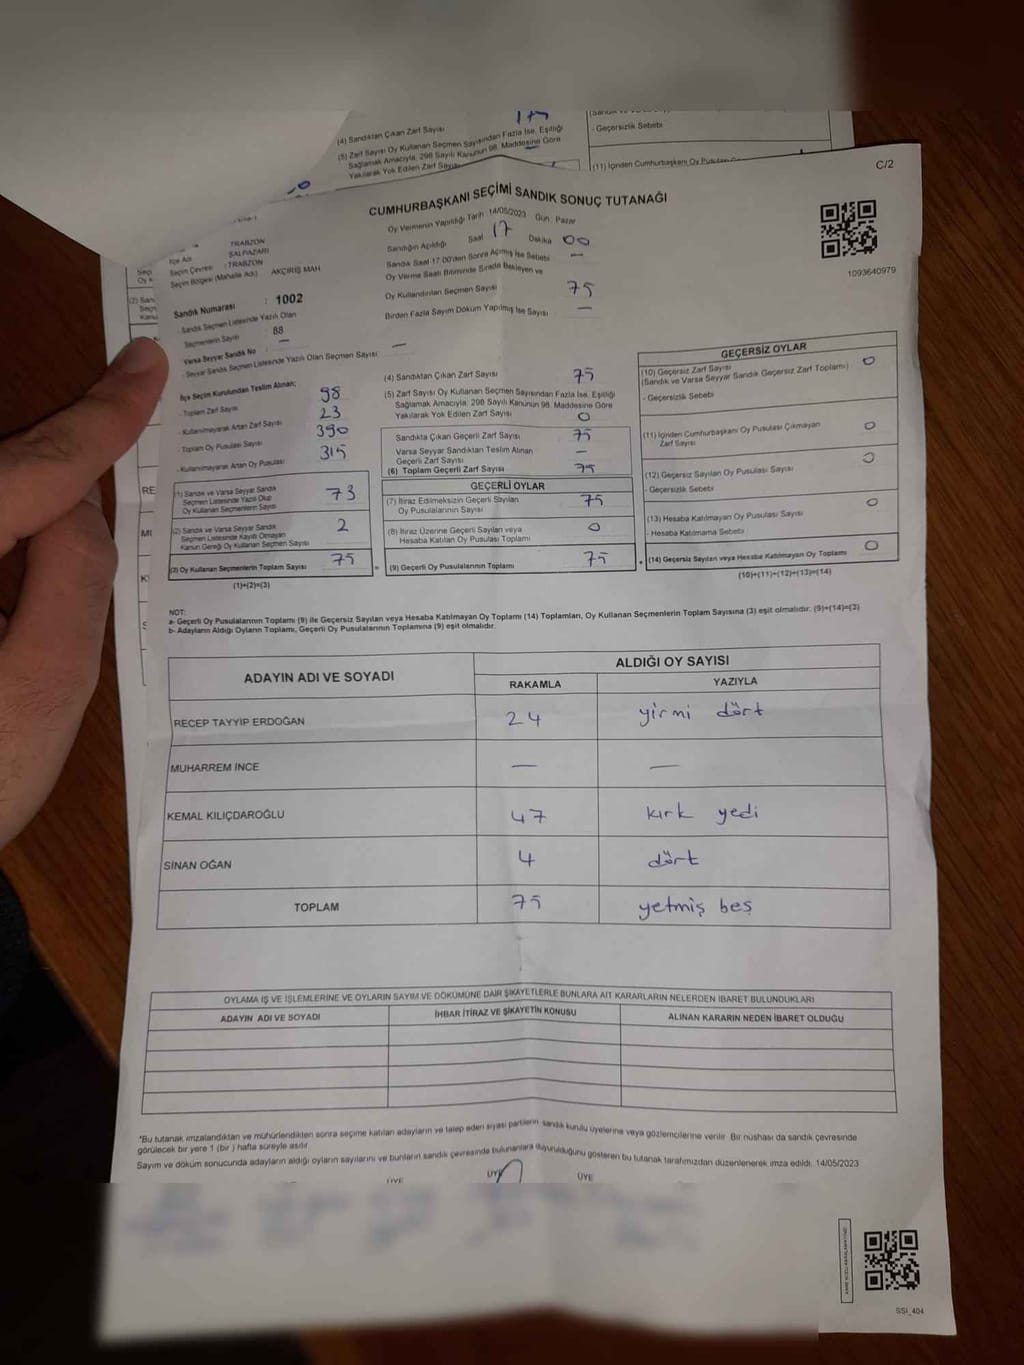 175
(4) Sandıktan Çıkan Zarf Sayısı
(5) Zarf Sayısı Oy Kullanan Seçmen Sayısından Fazla İse, Eşitliği
Sağlamak Amacıyla, 298 Sayılı Kanunun 98. Maddesine Göre
Yakılarak Yok Edilen Zarf Sayısı
- Geçersizlik Sebebi
(11) İçinden Cumhurbaşkanı Oy Pusulası
C/2
CUMHURBAŞKANI SEÇİMİ SANDIK SONUÇ TUTANAĞI
Oy Vermenin Yapıldığı Tarih :14/05/2023 Gün Pazar
Sandığın Açıldığı Saat 17 Dakika 00
Sandık Saat 17:00'den Sonra Açılmış İse Sebebi —
Oy Verme Saati Bitiminde Sırada Bekleyen ve
Oy Kullandırılan Seçmen Sayısı 75
Birden Fazla Sayım Döküm Yapılmış İse Sayısı —
1093640979
TRABZON
İlçe Adı ŞALPAZARI
Seçim Çevresi : TRABZON
Seçim Bölgesi (Mahalle Adı) AKÇİRİŞ MAH
Sandık Numarası : 1002
- Sandık Seçmen Listesinde Yazılı Olan
Seçmenlerin Sayısı : 88
Varsa Seyyar Sandık No —
- Seyyar Sandık Seçmen Listesinde Yazılı Olan Seçmen Sayısı —
İlçe Seçim Kurulundan Teslim Alınan;
- Toplam Zarf Sayısı 98
- Kullanılmayarak Artan Zarf Sayısı 23
- Toplam Oy Pusulası Sayısı 390
- Kullanılmayarak Artan Oy Pusulası 315
(1) Sandık ve Varsa Seyyar Sandık
Seçmen Listesinde Yazılı Olup
Oy Kullanan Seçmenlerin Sayısı 73
(2) Sandık ve Varsa Seyyar Sandık
Seçmen Listesinde Kayıtlı Olmayan
Kanun Gereği Oy Kullanan Seçmen Sayısı 2
(3) Oy Kullanan Seçmenlerin Toplam Sayısı 75
(1)+(2)=(3)
(4) Sandıktan Çıkan Zarf Sayısı 75
(5) Zarf Sayısı Oy Kullanan Seçmen Sayısından Fazla İse, Eşitliği
Sağlamak Amacıyla, 298 Sayılı Kanunun 98. Maddesine Göre
Yakılarak Yok Edilen Zarf Sayısı 0
Sandıkta Çıkan Geçerli Zarf Sayısı 75
Varsa Seyyar Sandıktan Teslim Alınan
Geçerli Zarf Sayısı —
(6) Toplam Geçerli Zarf Sayısı 75
GEÇERLİ OYLAR
(7) İtiraz Edilmeksizin Geçerli Sayılan
Oy Pusulalarının Sayısı 75
(8) İtiraz Üzerine Geçerli Sayılan veya
Hesaba Katılan Oy Pusulası Toplamı 0
(9) Geçerli Oy Pusulalarının Toplamı 75
GEÇERSİZ OYLAR
(10) Geçersiz Zarf Sayısı 0
(Sandık ve Varsa Seyyar Sandık Geçersiz Zarf Toplamı)
- Geçersizlik Sebebi
(11) İçinden Cumhurbaşkanı Oy Pusulası Çıkmayan
Zarf Sayısı 0
(12) Geçersiz Sayılan Oy Pusulası Sayısı 0
- Geçersizlik Sebebi
(13) Hesaba Katılmayan Oy Pusulası Sayısı 0
- Hesaba Katılmama Sebebi
(14) Geçersiz Sayılan veya Hesaba Katılmayan Oy Toplamı 0
(10)+(11)+(12)+(13)=(14)
NOT:
a- Geçerli Oy Pusulalarının Toplamı (9) ile Geçersiz Sayılan veya Hesaba Katılmayan Oy Toplamı (14) Toplamları, Oy Kullanan Seçmenlerin Toplam Sayısına (3) eşit olmalıdır. (9)+(14)=(3)
b- Adayların Aldığı Oyların Toplamı, Geçerli Oy Pusulalarının Toplamına (9) eşit olmalıdır.
ADAYIN ADI VE SOYADI ALDIĞI OY SAYISI
RAKAMLA YAZIYLA
RECEP TAYYİP ERDOĞAN 24 yirmi dört
MUHARREM İNCE — —
KEMAL KILIÇDAROĞLU 47 kırk yedi
SİNAN OĞAN 4 dört
TOPLAM 75 yetmiş beş
OYLAMA İŞ VE İŞLEMLERİNE VE OYLARIN SAYIM VE DÖKÜMÜNE DAİR ŞİKAYETLERLE BUNLARA AİT KARARLARIN NELERDEN İBARET BULUNDUKLARI
ADAYIN ADI VE SOYADI İHBAR İTİRAZ VE ŞİKAYETİN KONUSU ALINAN KARARIN NEDEN İBARET OLDUĞU
*Bu tutanak imzalandıktan ve mühürlendikten sonra seçime katılan adayların ve talep eden siyasi partilerin sandık kurulu üyelerine veya gözlemcilerine verilir. Bir nüshası da sandık çevresinde
görülecek bir yere 1 (bir ) hafta süreyle asılır.
Sayım ve döküm sonucunda adayların aldığı oyların sayılarını ve bunların sandık çevresinde bulunanlara duyurulduğunu gösteren bu tutanak tarafımızdan düzenlenerek imza edildi. 14/05/2023
ÜYE ÜYE ÜYE
SSI_404